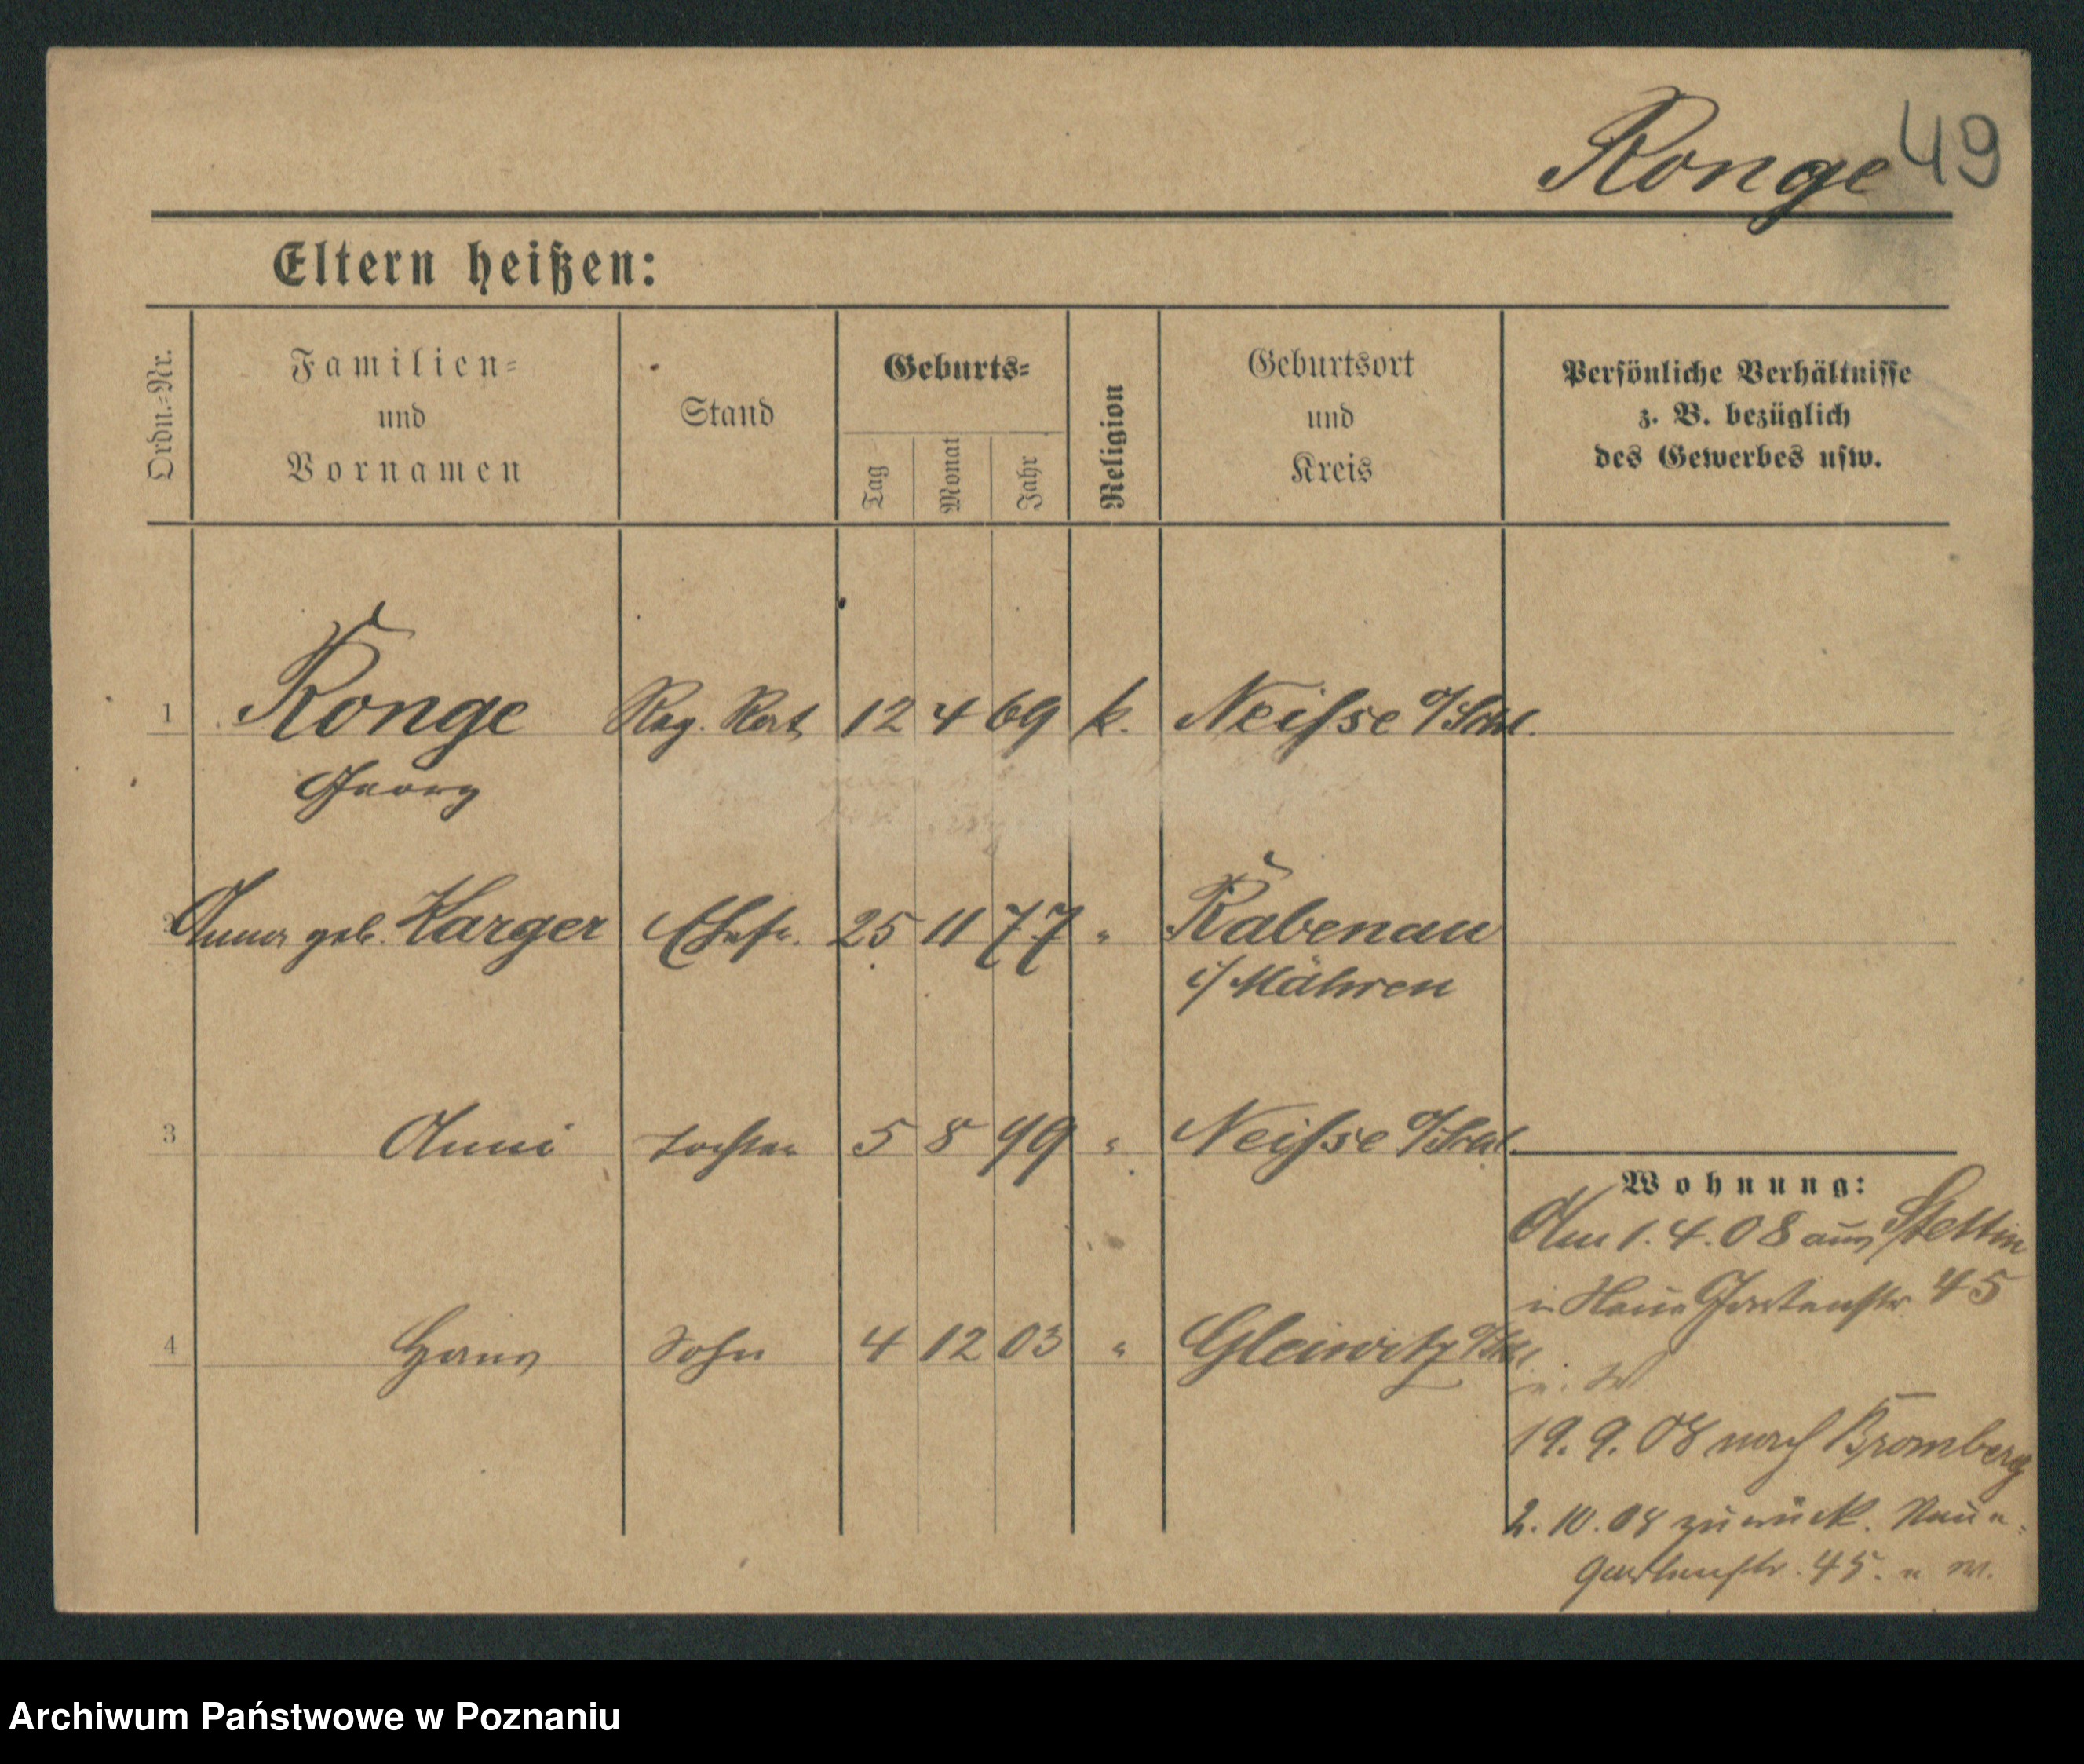 Ronge 49
Eltern heißen:
Ordn.-Nr.
Familien-
und
Vornamen
Stand
Geburts-
Tag
Monat
Jahr
Religion
Geburtsort
und
Kreis
Persönliche Verhältnisse
z. B. bezüglich
des Gewerbes usw.
1 Ronge Reg. Rat 12 4 69 k. Neisse O/Schl.
Georg
2 Anna geb. Karger Ehefr. 25 11 77 " Rabenau
i/ Mähren
3 Anni Tochter 5 8 99 " Neisse O/Schl.
4 Hans Sohn 4 12 03 " Gleiwitz O/Schl.
Wohnung:
Am 1. 4. 08 aus Stettin
n. Neue Gartenstr. 45
19. 9. 08 nach Bromberg
2. 10. 08 zurück. Neue
Gartenstr. 45.
Archiwum Państwowe w Poznaniu